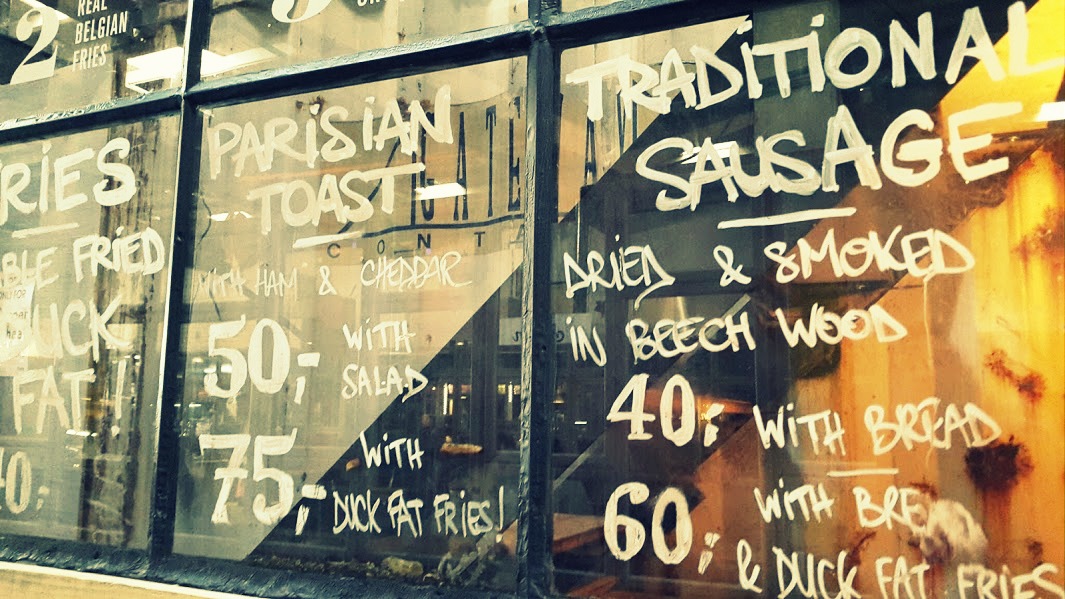 2
REAL
BELGIAN
FRIES
RIES
BLE FRIED
DUCK
FAT!
40,-
PARISIAN
TOAST
WITH HAM & CHEDDAR
50,- WITH
SALAD
75,- WITH
DUCK FAT FRIES!
TRADITIONAL
SAUSAGE
DRIED & SMOKED
IN BEECH WOOD
40,- WITH BREAD
60,- WITH BRE
& DUCK FAT FRIES